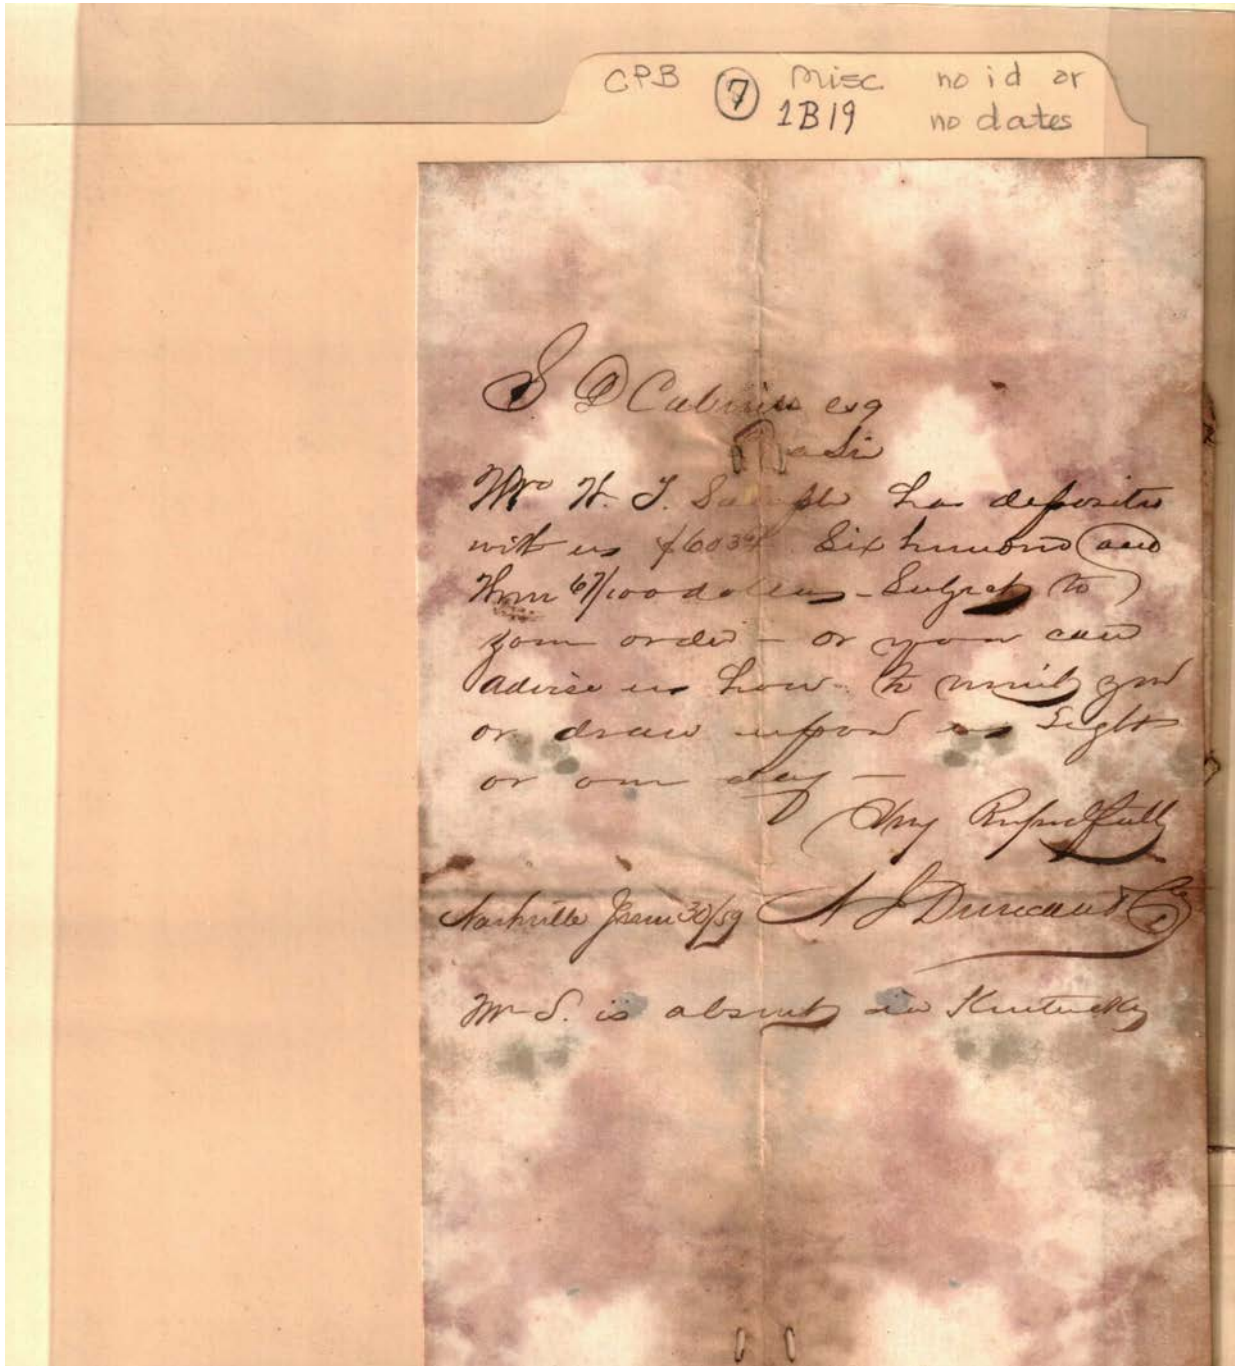 CPB ⑦ Misc no id or
1B19 no dates
S D Cabiniss esq
Dr Sir
Mr W. T. Sample has deposited
with us $603 67 Six hundred and
Three 67/100 dollars - Subject to
your order - or you can
advise us how to remit you
or draw upon us Sight
or one day -
Very Respectfully
Nashville June 30/59 A J Duncan & Co
Mr S. is absent in Kentucky